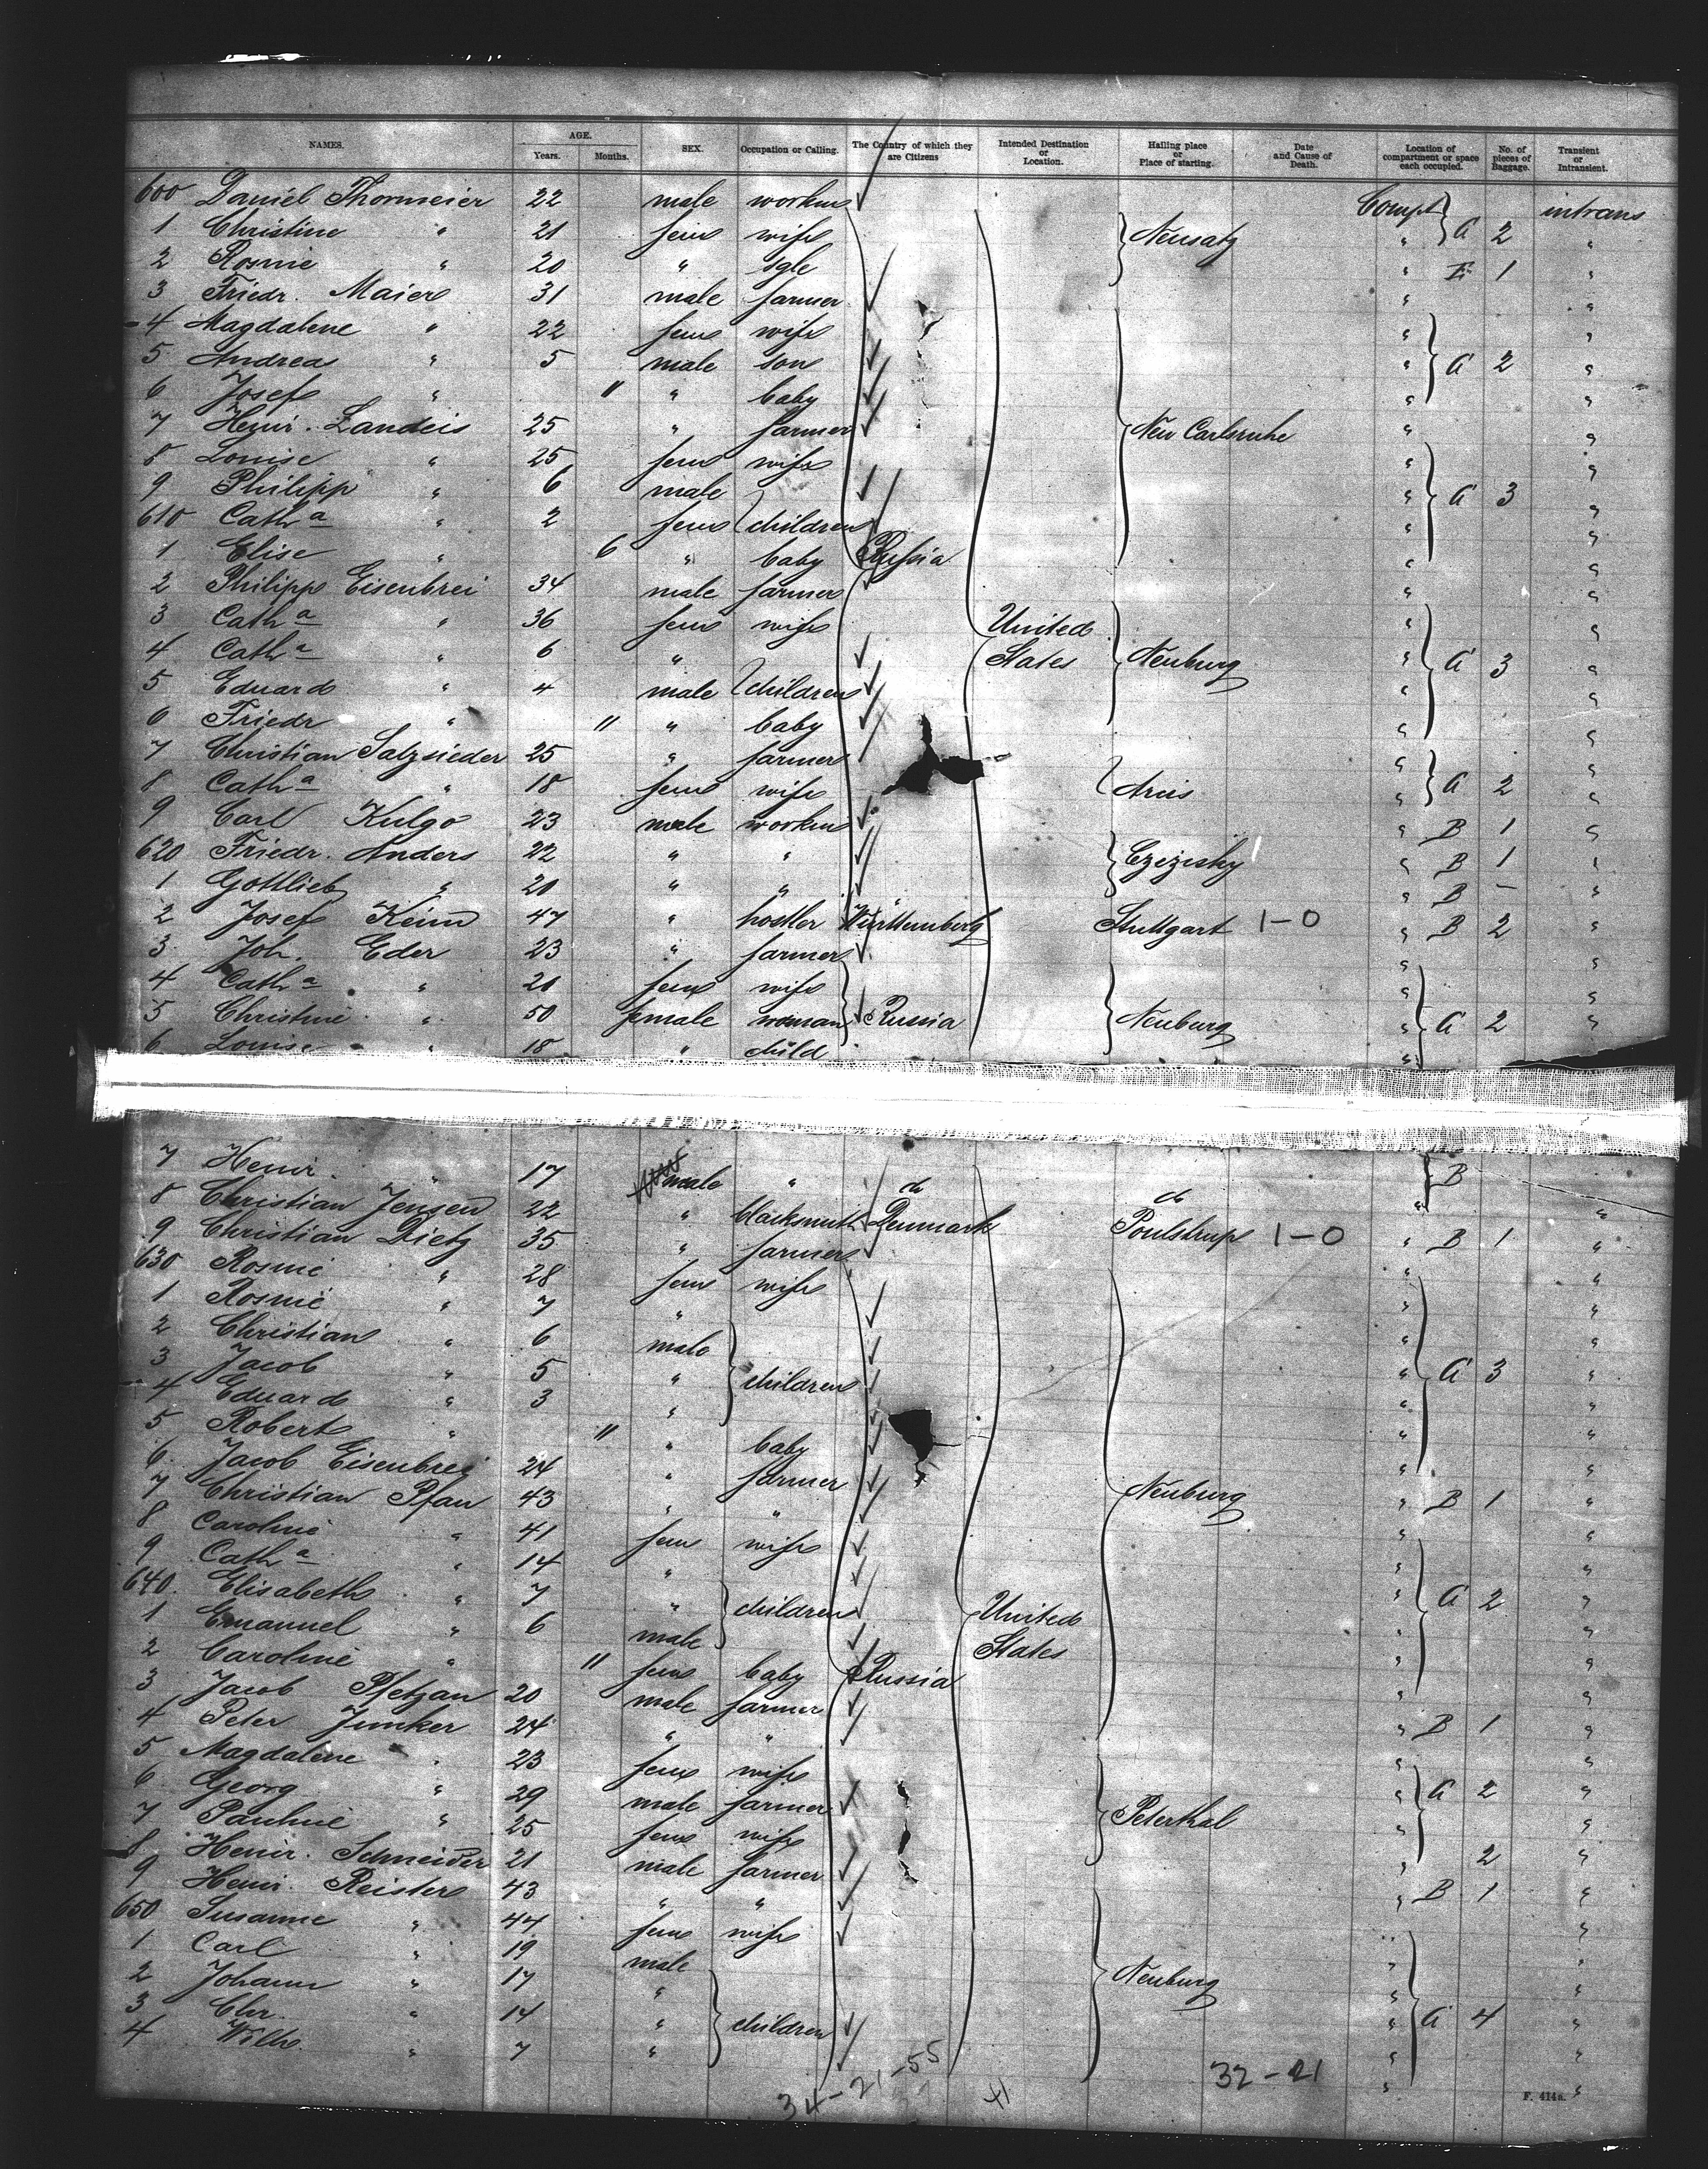 NAMES. AGE. Years. Months. SEX. Occupation or Calling. The Country of which they are Citizens Intended Destination or Location. Hailing place or Place of starting. Date and Cause of Death. Location of compartment or space each occupied. No. of pieces of Baggage. Transient or Intransient.
600 Daniel Thormeier 22 male workm Compt intrans
1 Christine " 21 fem wife Neusatz " A 2 "
2 Rosine " 20 " sgle " E 1 "
3 Friedr. Maier 31 male farmer " "
4 Magdalene " 22 fem wife " "
5 Andreas " 5 male son " A 2 "
6 Josef " 11 " baby " "
7 Heinr. Landeis 25 " farmer New Carlsruhe " "
8 Louise " 25 fem wife " "
9 Philipp " 6 male " A 3 "
610 Cath a " 2 fem children " "
1 Elise " 6 " baby Russia " "
2 Philipp Eisenbrei 34 male farmer " "
3 Cath a " 36 fem wife United " "
4 Cath a " 6 " States Neuburg " A 3 "
5 Eduard " 4 male children " "
6 Friedr " 11 " baby " "
7 Christian Salzsieder 25 " farmer " "
8 Cath a " 18 fem wife Arcis " A 2 "
9 Carl Kulgo 23 male workm " B 1 "
620 Friedr. Anders 22 " " " B 1 "
1 Gottlieb " 20 " " " B - "
2 Josef Keim 47 " hostler Württemberg Stuttgart 1-0 " B 2 "
3 Joh. Eder 23 " farmer " "
4 Cath a " 21 fem wife " "
5 Christine " 50 female woman Russia Neuburg " A 2 "
6 Louise " 18 " child "
7 Heinr. " 17 male " B
8 Christian Jensen 22 " blacksmith Denmark Poulstrup 1-0 " "
9 Christian Dietz 35 " farmer " B 1 "
630 Rosine " 28 fem wife " "
1 Rosine " 7 " " "
2 Christian " 6 male " "
3 Jacob " 5 " children " A 3 "
4 Eduard " 3 " " "
5 Robert " 11 " baby " "
6 Jacob Eisenbrei 24 " farmer " "
7 Christian Pfau 43 " " Neuburg " B 1 "
8 Caroline " 41 fem wife " "
9 Cath a " 14 " " "
640 Elisabeth " 7 " children United " A 2 "
1 Emanuel " 6 male States " "
2 Caroline " 11 fem baby Russia " "
3 Jacob Pfetzan 20 male farmer " "
4 Peter Junker 24 " " " B 1 "
5 Magdalene " 23 fem wife " "
6 Georg " 29 male farmer Peterthal " A 2 "
7 Pauline " 25 fem wife " "
8 Heinr. Schneider 21 male farmer " 2 "
9 Heinr. Reister 43 " " " B 1 "
650 Susanne " 44 fem wife " "
1 Carl " 19 male " "
2 Johann " 17 " Neuburg " "
3 Chr. " 14 " children " A 4 "
4 Wilh. " 7 " " "
34-21-55 41 32-21
F. 414a.